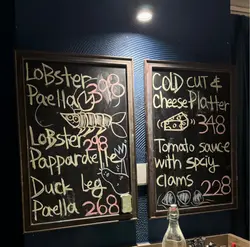 Lobster 398
Paella
Lobster 298
Pappardelle
Duck leg
Paella 268
COLD CUT &
Cheese Platter
348
Tomato sauce
with spciy
clams 228